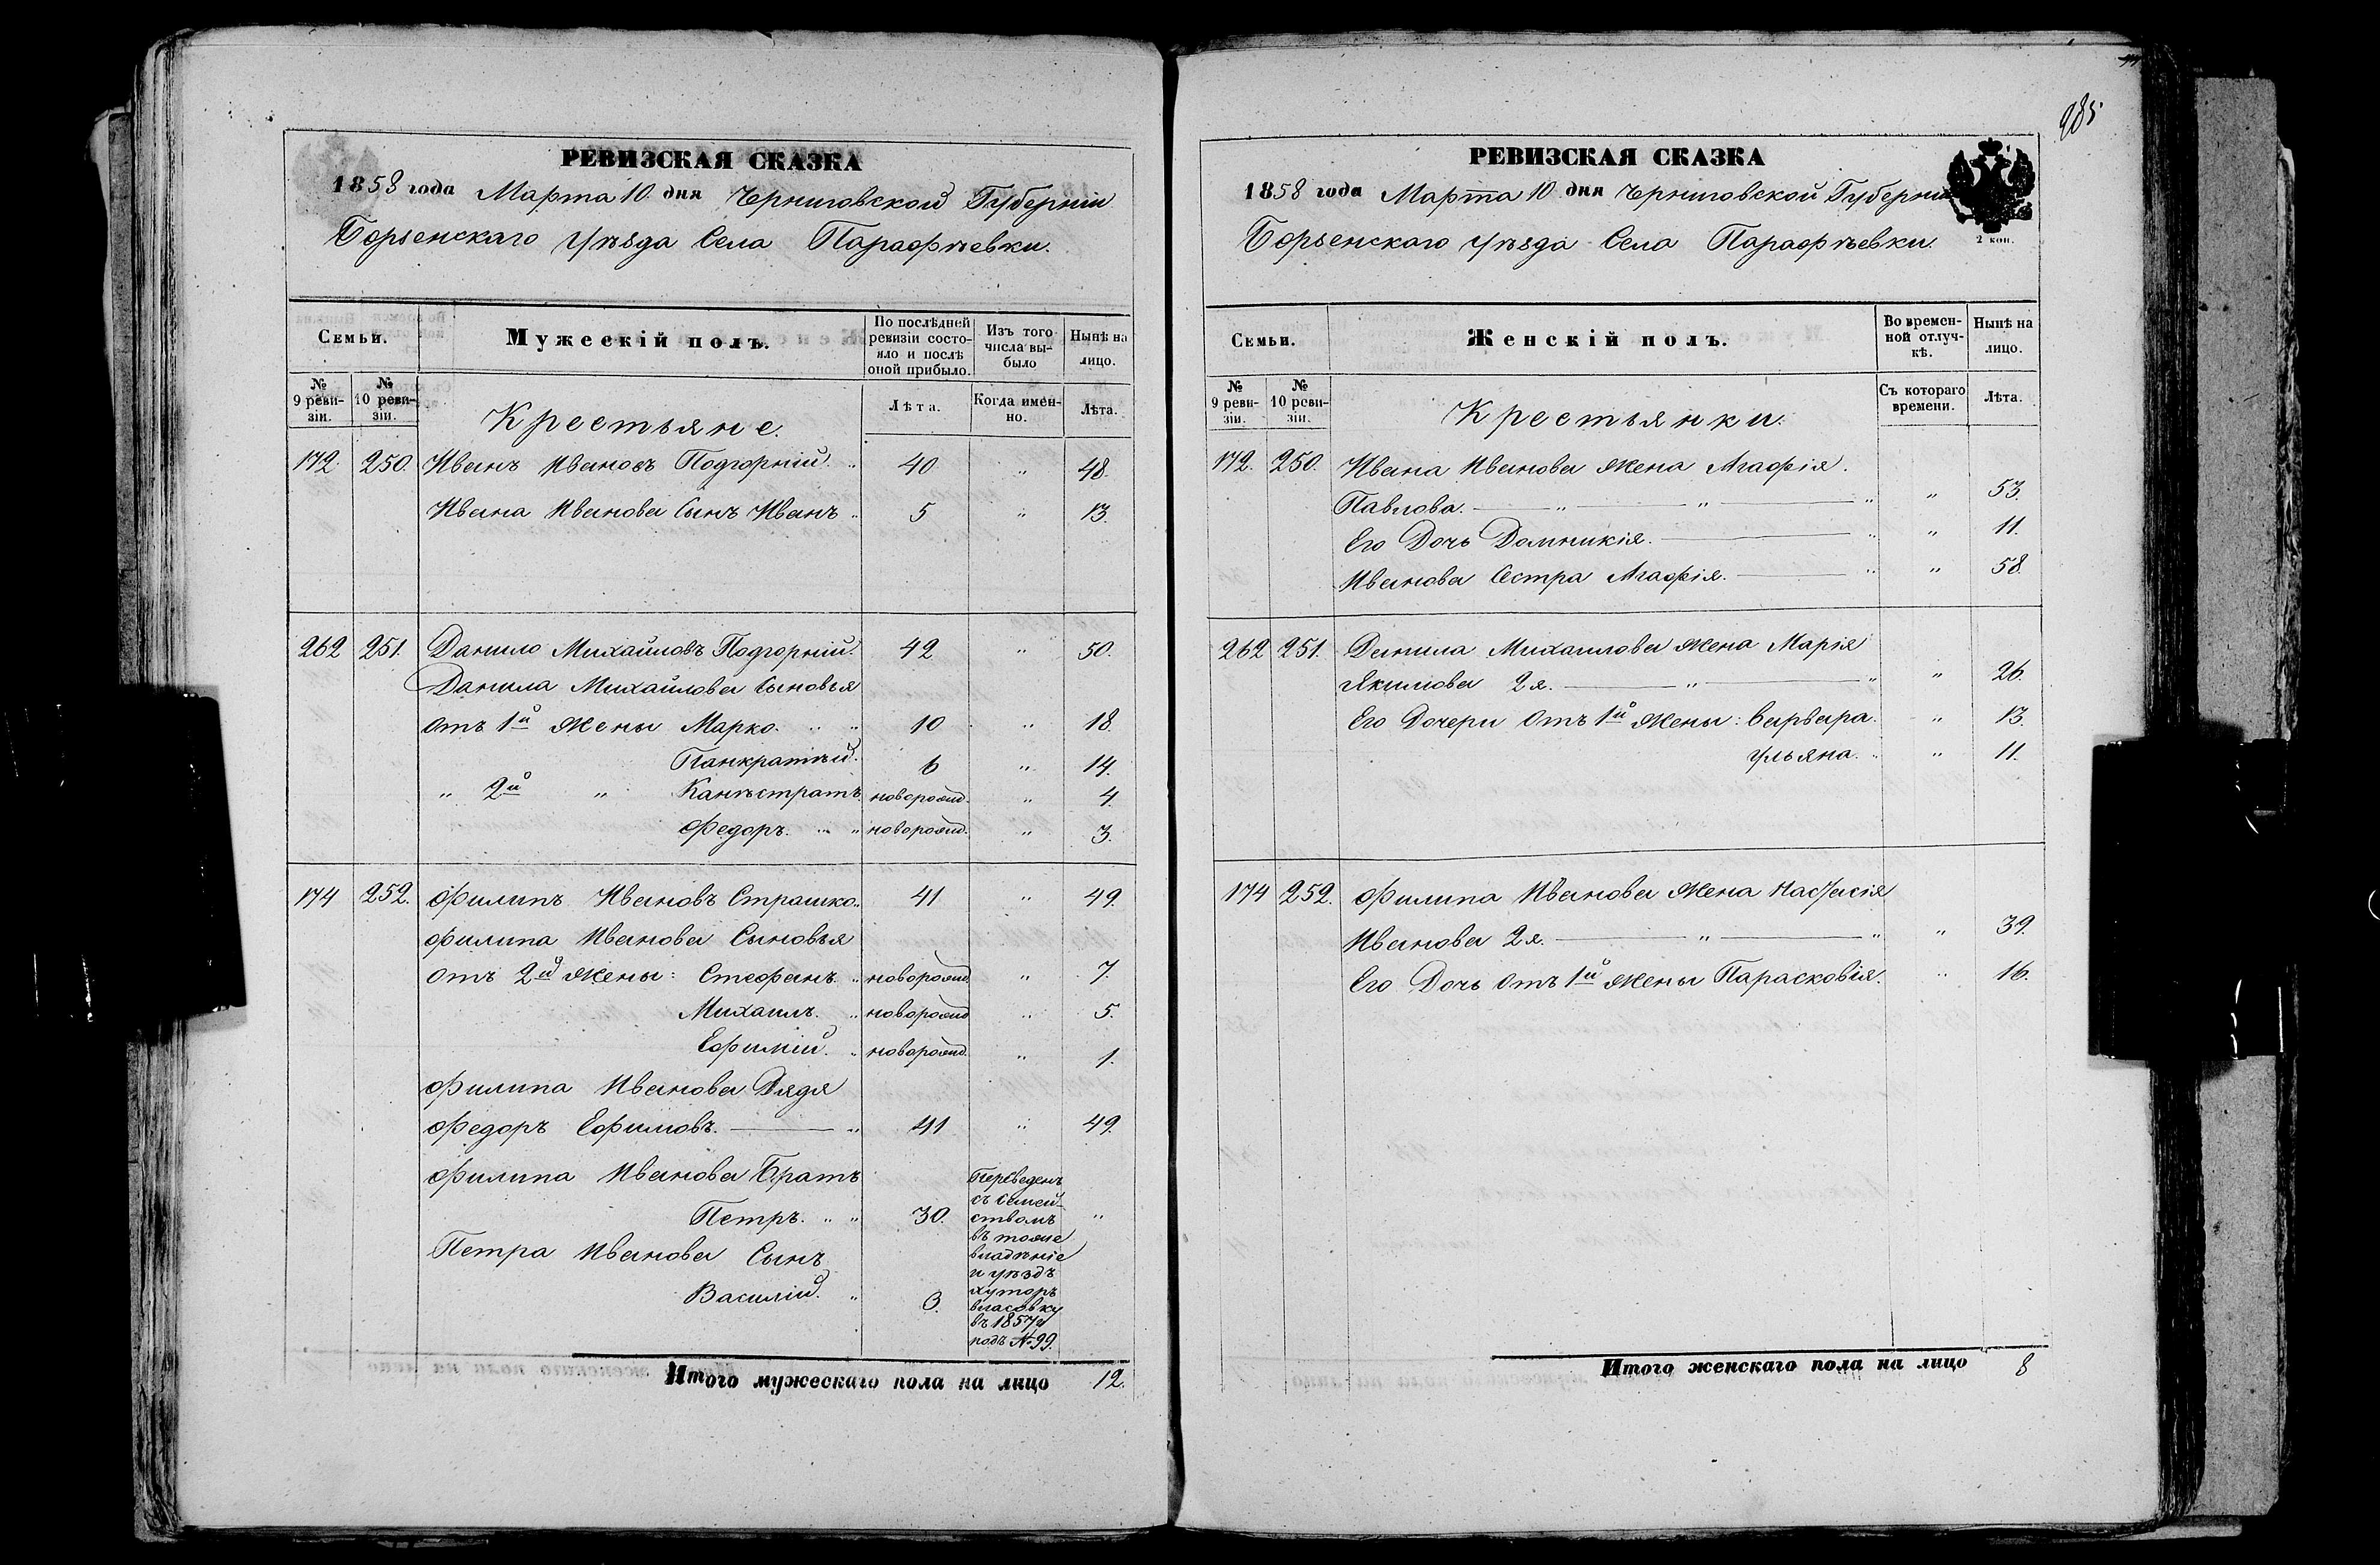 РЕВИЗСКАЯ СКАЗКА
1858 года Марта 10 дня Черниговской Губерніи
Борзенскаго Уѣзда Села Парафѣевки.
Семьи.
Мужескій полъ.
По послѣдней ревизіи состо-
яло и послѣ
оной прибыло.
Изъ того
числа вы-
было
Нынѣ на
лицо.
№
9 реви-
зіи.
№
10 реви-
зіи.
Крестьяне.
Лѣта.
Когда имен-
но.
Лѣта.
172. 250. Иванъ Ивановъ Подгорній. " 40 " 48.
Ивана Иванова Сынъ Иванъ " 5 " 13.
262 251. Данило Михайловъ Подгорній. 42 " 50.
Данила Михайлова Сыновья
отъ 1й Жены Марко. " " 10 " 18.
Панкратій. 6 " 14.
" 2й " Канѣстратъ. новорожд. " 4.
Федоръ. " " новорожд. " 3.
174 252. Филипъ Ивановъ Страшко. " 41 " 49.
Филипа Иванова Сыновья
отъ 2й Жены: Стефанъ. " новорожд. " 7.
Михаилъ. " новорожд " 5.
Ефимій. " новорожд. " 1.
Филипа Иванова Дядя
Федоръ Ефимовъ. — " 41 " 49.
Филипа Иванова Братъ
Петръ. " " 30. "
Петра Иванова Сынъ
Василій. " 3.
Переведенъ
съ Семей-
ствомъ
въ тоже
владѣніе
и уѣздъ
хуторъ
власовку
въ 1857 г
подъ №99.
Итого мужескаго пола на лицо 12.
285
РЕВИЗСКАЯ СКАЗКА
1858 года Марта 10 дня Черниговской Губерніи
Борзенскаго Уѣзда Села Парафѣевки.
2 коп.
Семьи.
Женскій полъ.
Во времен-
ной отлуч-
кѣ.
Нынѣ на
лицо.
№
9 реви-
зіи.
№
10 реви-
зіи.
Крестьянки.
Съ котораго
времени.
Лѣта.
172. 250. Ивана Иванова Жена Агафія.
Павлова. — " — " — " " 53.
Его Дочь Домникія. — " " 11.
Иванова Сестра Агафія. — " " 58.
262 251. Данила Михаилова Жена Марія
Якимова 2я. — " — " " 26.
Его Дочери отъ 1й Жены: Варвара. " 13.
Ульяна. " " 11.
174 252. Филипа Иванова Жена Настасія
Иванова 2я. — " — " " 39.
Его Дочь отъ 1й Жены Парасковія. " 16.
Итого женскаго пола на лицо 8